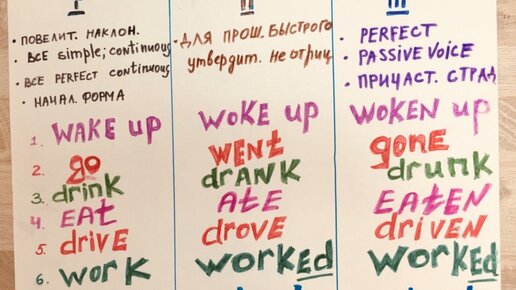 I II III
• ПОВЕЛИТ. НАКЛОН.
• ВСЕ simple; continuous
• ВСЕ PERFECT continuous
• НАЧАЛ. ФОРМА
• ДЛЯ ПРОШ. БЫСТРОГО
утвердит. не отриц
• PERFECT
• PASSIVE VOICE
• ПРИЧАСТ. СТРАД
1. WAKE up WOKE up WOKEN up
2. go WENT gONE
3. drink drANK drunk
4. EAt AtE EAtEN
5. drivE drovE driVEN
6. Work WorkEd WorkEd